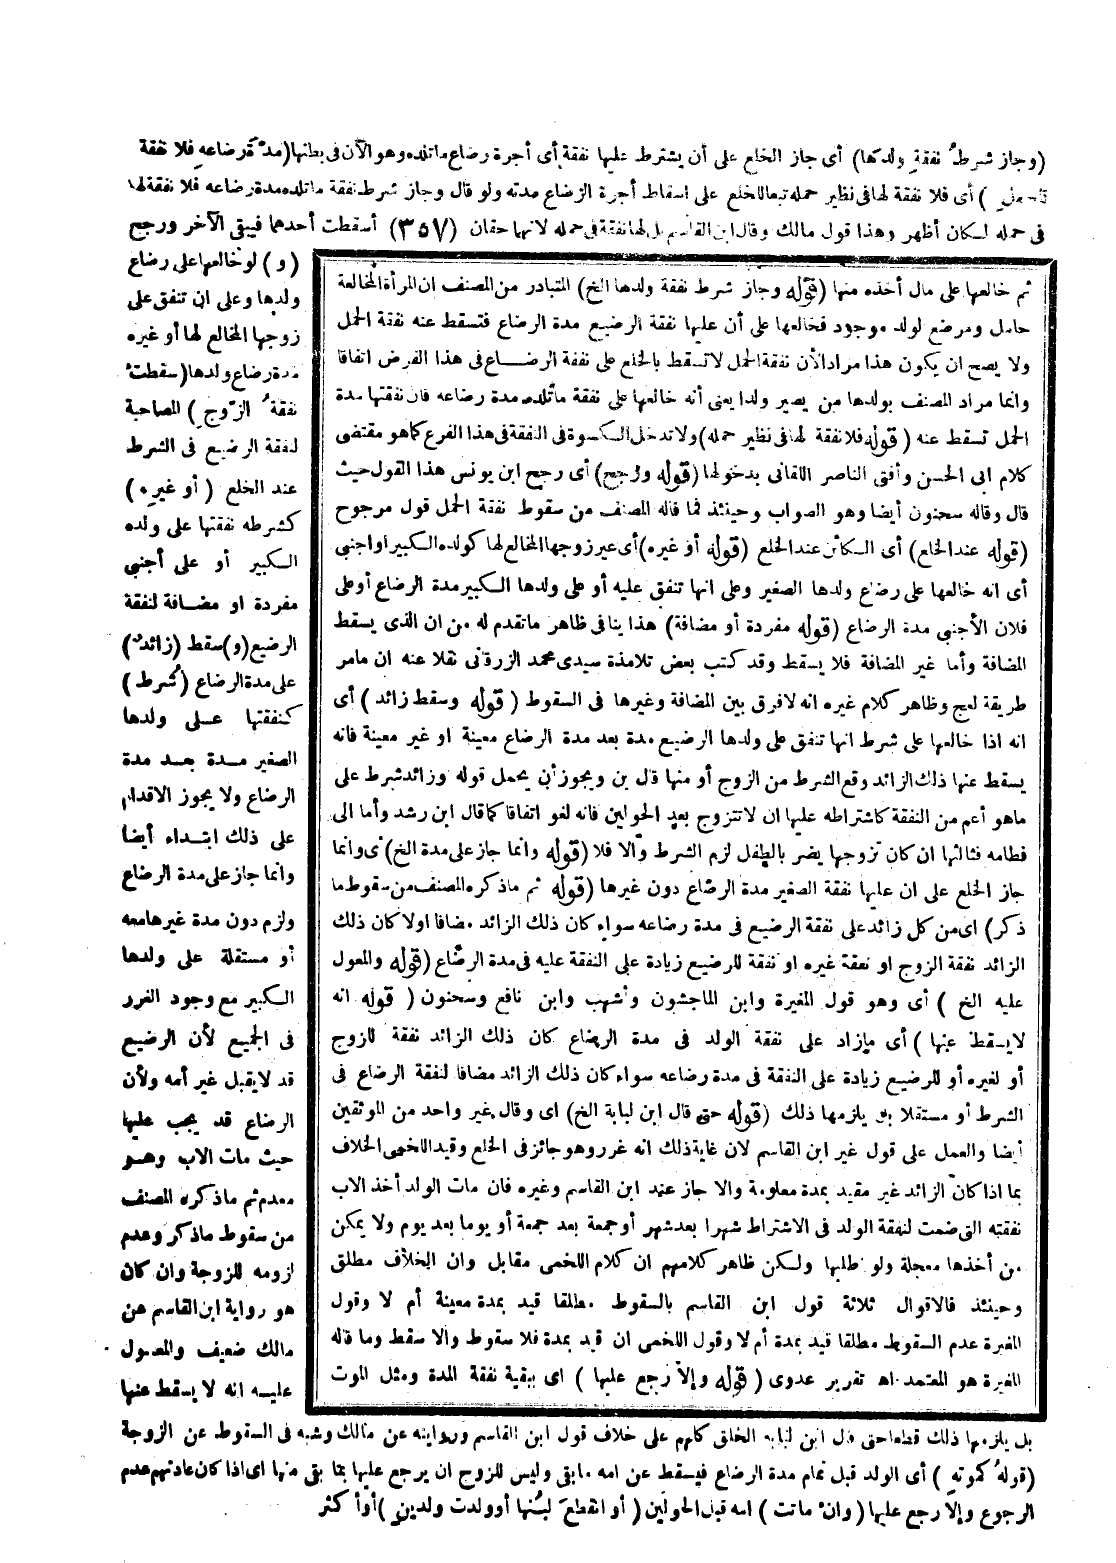 (وجاز شرط نفقة ولدها) أى جاز الخلع على أن يشترط عليها نفقة أى أجرة رضاع ماتلده وهو الآن فى بطنها (مدّة رضاعه فلا نفقة
للحمل) أى فلا نفقة لها فى نظير حمله تبعا للخلع على اسقاط أجرة الرضاع مدته ولو قال وجاز شرط نفقة ماتلده مدة رضاعه فلا نفقة لها
فى حمله لكان أظهر وهذا قول مالك وقال ابن القاسم بل لها نفقة فى حمله لانها حقان (٣٥٧) أسقطت أحدهما فيبقى الآخر ورجح
(و) لو خالعها على رضاع
ولدها وعلى ان تنفق على
زوجها المخالع لها أو غيره
مدة رضاع ولدها (سقطت
نفقة الزّوج) المصاحبة
لنفقة الرضيع فى الشرط
عند الخلع (أو غيره)
كشرطه نفقتها على ولده
الكبير أو على أجنبى
مفردة او مضافة لنفقة
الرضيع (و) سقط (زائد)
على مدة الرضاع (شُرط)
كنفقتها على ولدها
الصغير مدة بعد مدة
الرضاع ولا يجوز الاقدام
على ذلك ابتداء أيضا
وانما جاز على مدة الرضاع
ولزم دون مدة غيرها معه
أو مستقلة على ولدها
الكبير مع وجود الغرر
فى الجميع لأن الرضيع
قد لا يقبل غير أمه ولأن
الرضاع قد يجب عليها
حيث مات الاب وهو
معدم ثم ماذكره المصنف
من سقوط ماذكر وعدم
لزومه للزوجة وان كان
هو رواية ابن القاسم عن
مالك ضعيف والمعول
عليه انه لا يسقط عنها
ثم خالعها على مال أخذه منها (قوله وجاز شرط نفقة ولدها الخ) المتبادر من المصنف ان المرأة المخالعة
حامل ومرضع لولد موجود فخالعها على أن عليها نفقة الرضيع مدة الرضاع فتسقط عنه نفقة الحمل
ولا يصح ان يكون هذا مرادا لأن نفقة الحمل لا تسقط بالخلع على نفقة الرضاع فى هذا الفرض اتفاقا
وانما مراد المصنف بولدها من يصير ولدا يعنى أنه خالعها على نفقة ماتلده مدة رضاعه فان نفقتها مدة
الحمل تسقط عنه (قوله فلا نفقة لها فى نظير حمله) ولا تدخل الكسوة فى النفقة فى هذا الفرع كما هو مقتضى
كلام ابى الحسن وأفتى الناصر اللقانى بدخولها (قوله ورُجح) أى رجح ابن يونس هذا القول حيث
قال وقاله سحنون أيضا وهو الصواب وحينئذ فما قاله المصنف من سقوط نفقة الحمل قول مرجوح
(قوله عند الخلع) أى الكائن عند الخلع (قوله أو غيره) أى غير زوجها المخالع لها كولده الكبير او اجنبى
أى انه خالعها على رضاع ولدها الصغير وعلى انها تنفق عليه أو على ولدها الكبير مدة الرضاع أو على
فلان الأجنبى مدة الرضاع (قوله مفردة أو مضافة) هذا ينافى ظاهر ماتقدم له من ان الذى يسقط
المضافة وأما غير المضافة فلا يسقط وقد كتب بعض تلامذة سيدى محمد الزرقانى نقلا عنه ان مامر
طريقة لعج وظاهر كلام غيره انه لا فرق بين المضافة وغيرها فى السقوط (قوله وسقط زائد) أى
انه اذا خالعها على شرط انها تنفق على ولدها الرضيع مدة بعد مدة الرضاع معينة او غير معينة فانه
يسقط عنها ذلك الزائد وقع الشرط من الزوج أو منها قال بن ويجوز أن يحمل قوله وزائد شرط على
ماهو أعم من النفقة كاشتراطه عليها ان لا تتزوج بعد الحولين فانه لغو اتفاقا كما قال ابن رشد وأما الى
فطامه فثالثها ان كان تزوجها يضر بالطفل لزم الشرط والا فلا (قوله وانما جاز على مدة الخ) أى وانما
جاز الخلع على ان عليها نفقة الصغير مدة الرضاع دون غيرها (قوله ثم ماذكره المصنف من سقوط ما
ذكر) اى من كل زائد على نفقة الرضيع فى مدة رضاعه سواء كان ذلك الزائد مضافا اولا كان ذلك
الزائد نفقة الزوج او نفقة غيره او نفقة للرضيع زيادة على النفقة عليه فى مدة الرضاع (قوله والمعول
عليه الخ) أى وهو قول المغيرة وابن الماجشون وأشهب وابن نافع وسحنون (قوله انه
لا يسقط عنها) أى مازاد على نفقة الولد فى مدة الرضاع كان ذلك الزائد نفقة للزوج
أو لغيره أو للرضيع زيادة على النفقة فى مدة رضاعه سواء كان ذلك الزائد مضافا لنفقة الرضاع فى
الشرط أو مستقلا بل يلزمها ذلك (قوله حتى قال ابن لبابة الخ) اى وقال غير واحد من الموثقين
أيضا والعمل على قول غير ابن القاسم لان غاية ذلك انه غرر وهو جائز فى الخلع وقيد اللخمى الخلاف
بما اذا كان الزائد غير مقيد بمدة معلومة والا جاز عند ابن القاسم وغيره فان مات الولد أخذ الاب
نفقته التى ضمت لنفقة الولد فى الاشتراط شهرا بعد شهر أو جمعة بعد جمعة أو يوما بعد يوم ولا يمكن
من أخذها معجلة ولو طلبها ولكن ظاهر كلامهم ان كلام اللخمى مقابل وان الخلاف مطلق
وحينئذ فالاقوال ثلاثة قول ابن القاسم بالسقوط مطلقا قيد بمدة معينة أم لا وقول
المغيرة عدم السقوط مطلقا قيد بمدة أم لا وقول اللخمى ان قيد بمدة فلا سقوط والا سقط وما قاله
المغيرة هو المعتمد اه تقرير عدوى (قوله والّا رجع عليها) اى ببقية نفقة المدة ومثل الموت
بل يلزمها ذلك قطعا حتى قال ابن لبابة الخلق كلهم على خلاف قول ابن القاسم وروايته عن مالك وشبه فى السقوط عن الزوجة
(قوله كموته) أى الولد قبل تمام مدة الرضاع فيسقط عن امه مابقى وليس للزوج ان يرجع عليها بما بقى منها اى اذا كان عادتهم عدم
الرجوع وإلّا رجع عليها (وان ماتت) امه قبل الحولين (أو انقطع لبنُها أو ولدت ولدين) أو أكثر